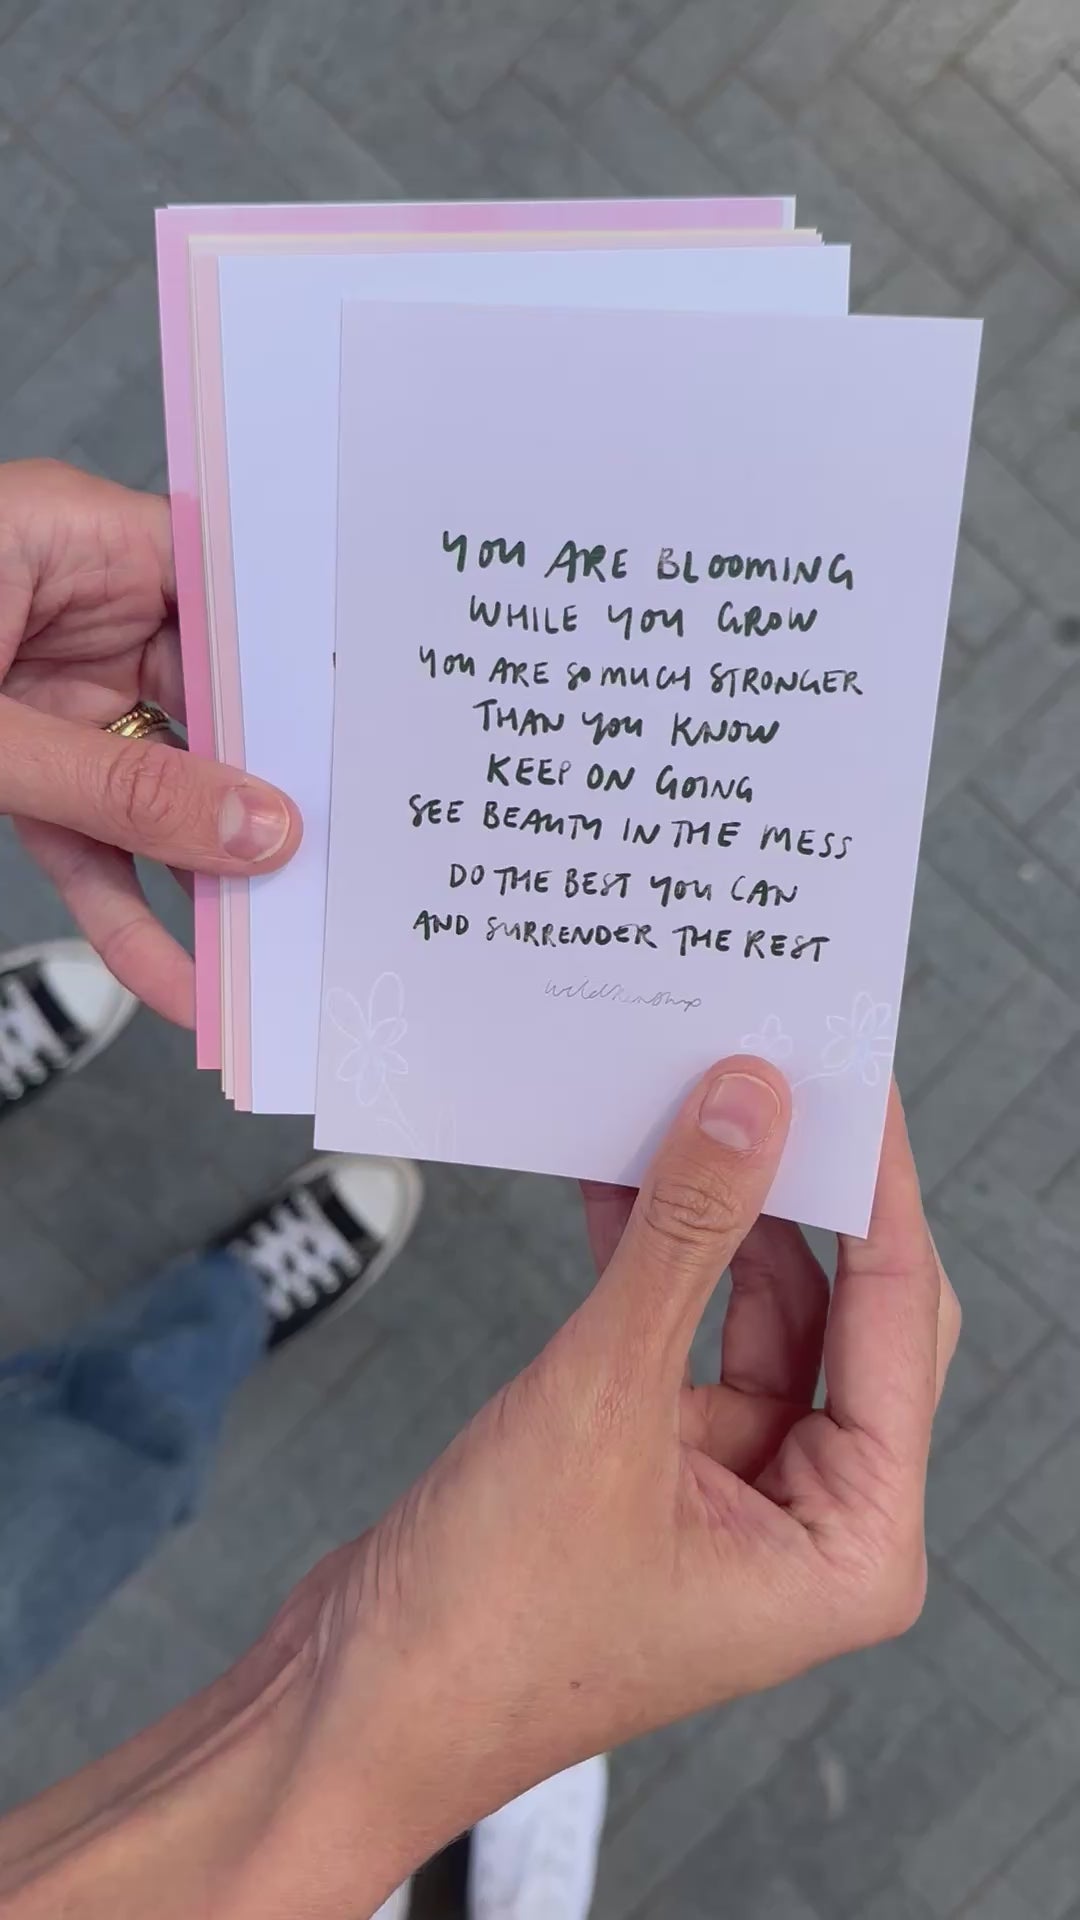 YOU ARE BLOOMING
WHILE YOU GROW
YOU ARE SO MUCH STRONGER
THAN YOU KNOW
KEEP ON GOING
SEE BEAUTY IN THE MESS
DO THE BEST YOU CAN
AND SURRENDER THE REST
wildkinship